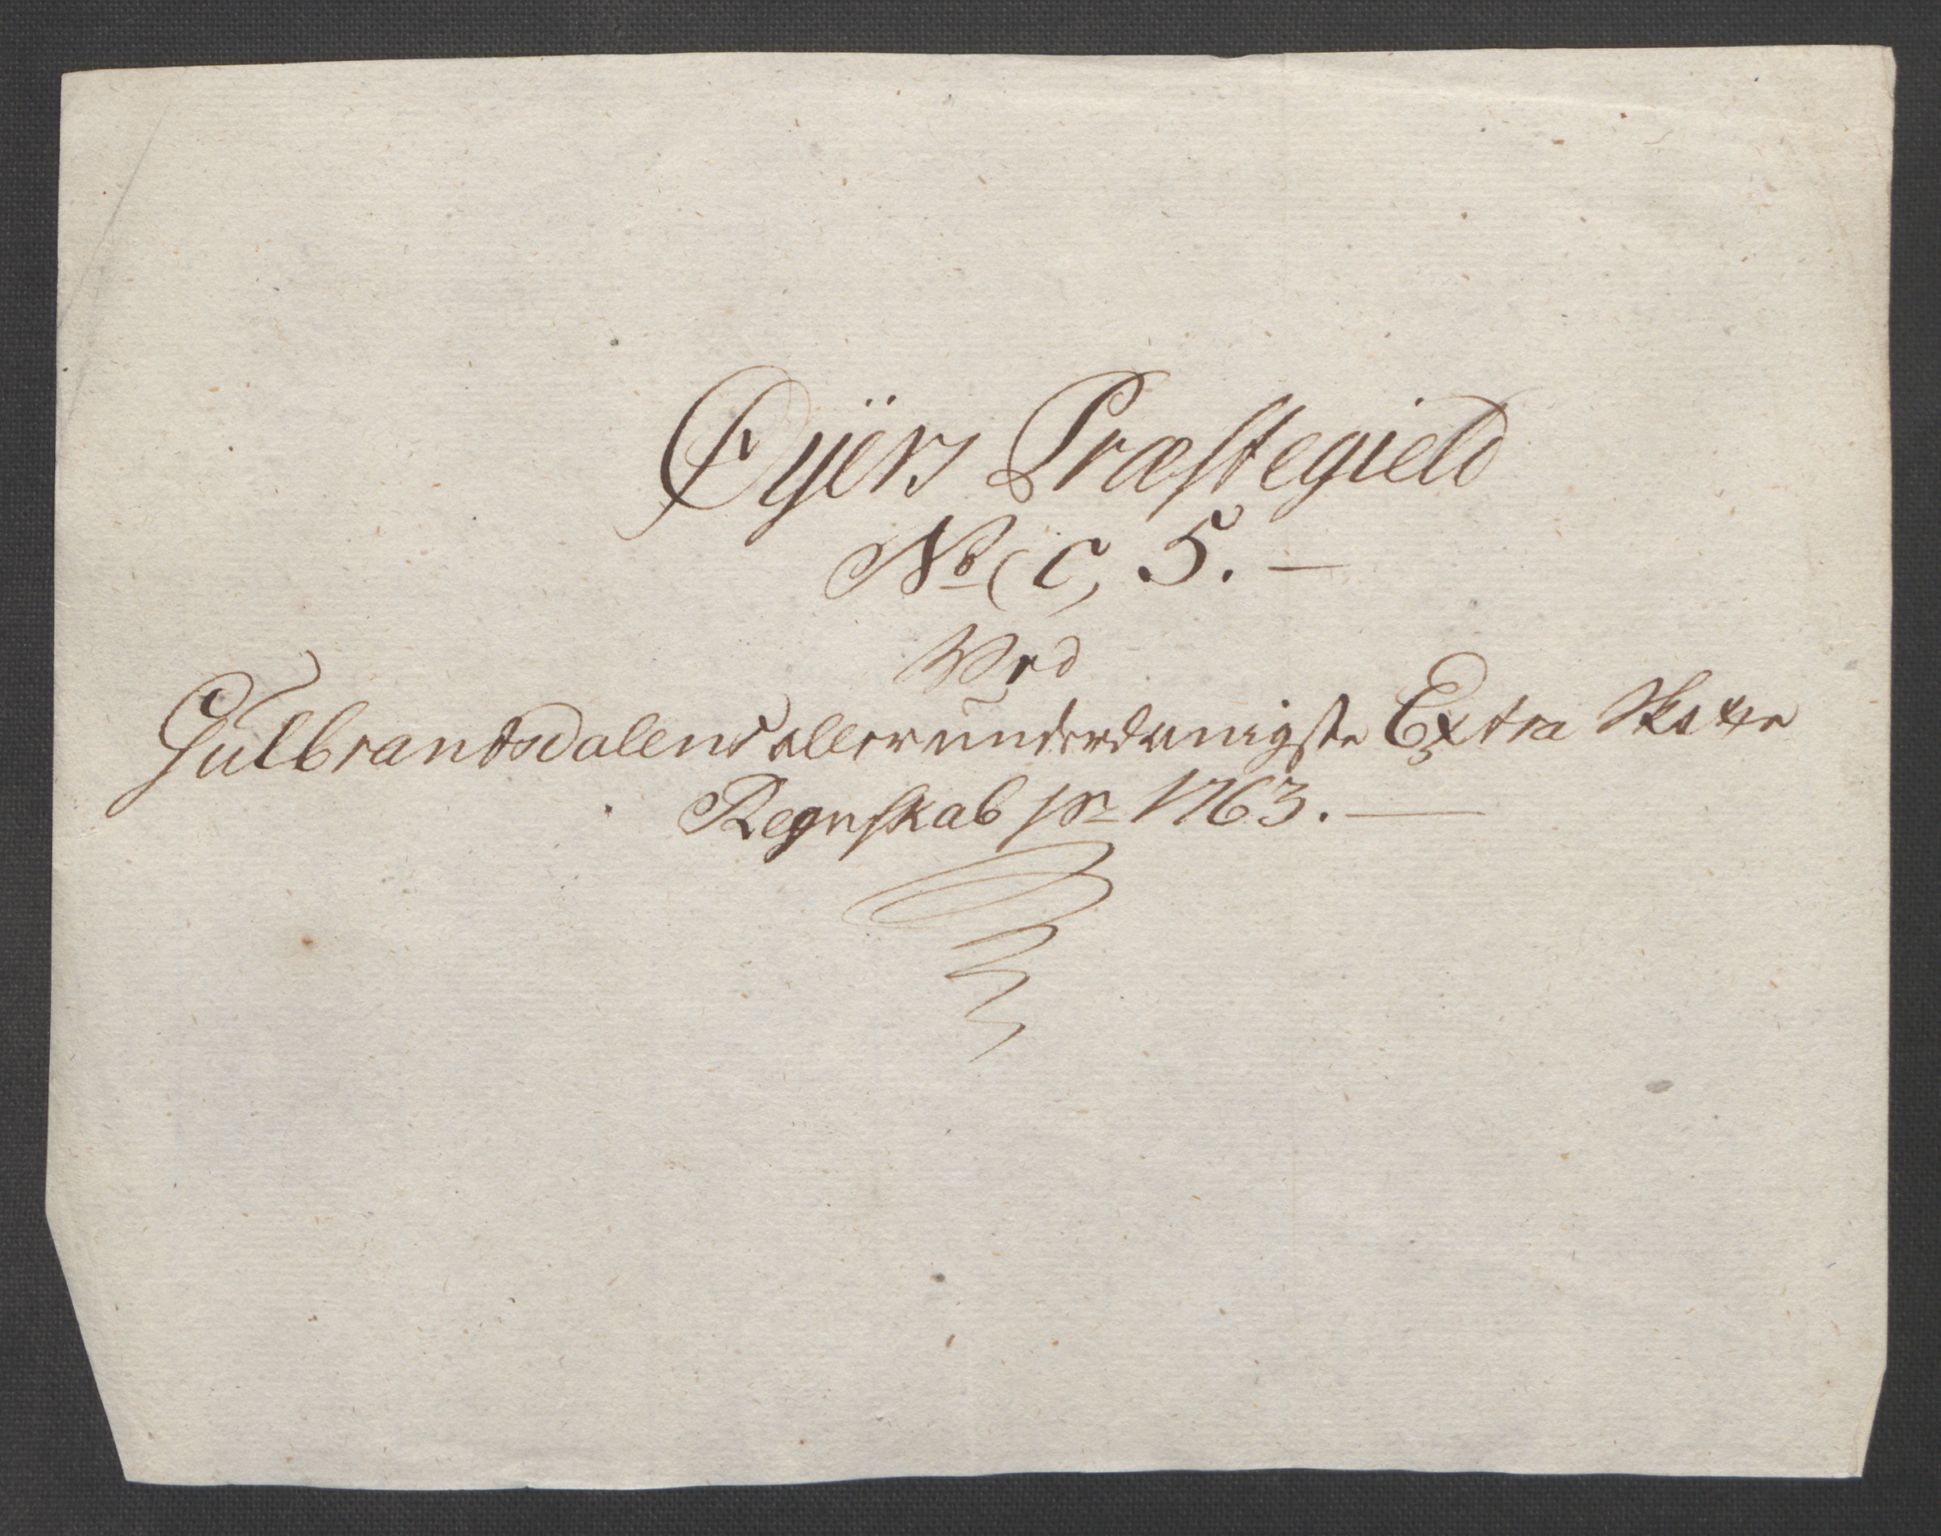 Øÿers Præstegield
No (c, 5. —
Ved
Gulbrandsdalens allerunderdanigste Extra Skatte
Regnskab pr 1763. —